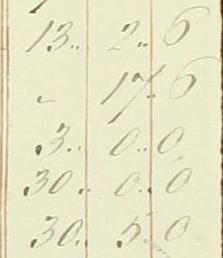 13.. 2.. 6
.. 17.. 6
3.. 0.. 0
30.. 0.. 0
30.. 5.. 0